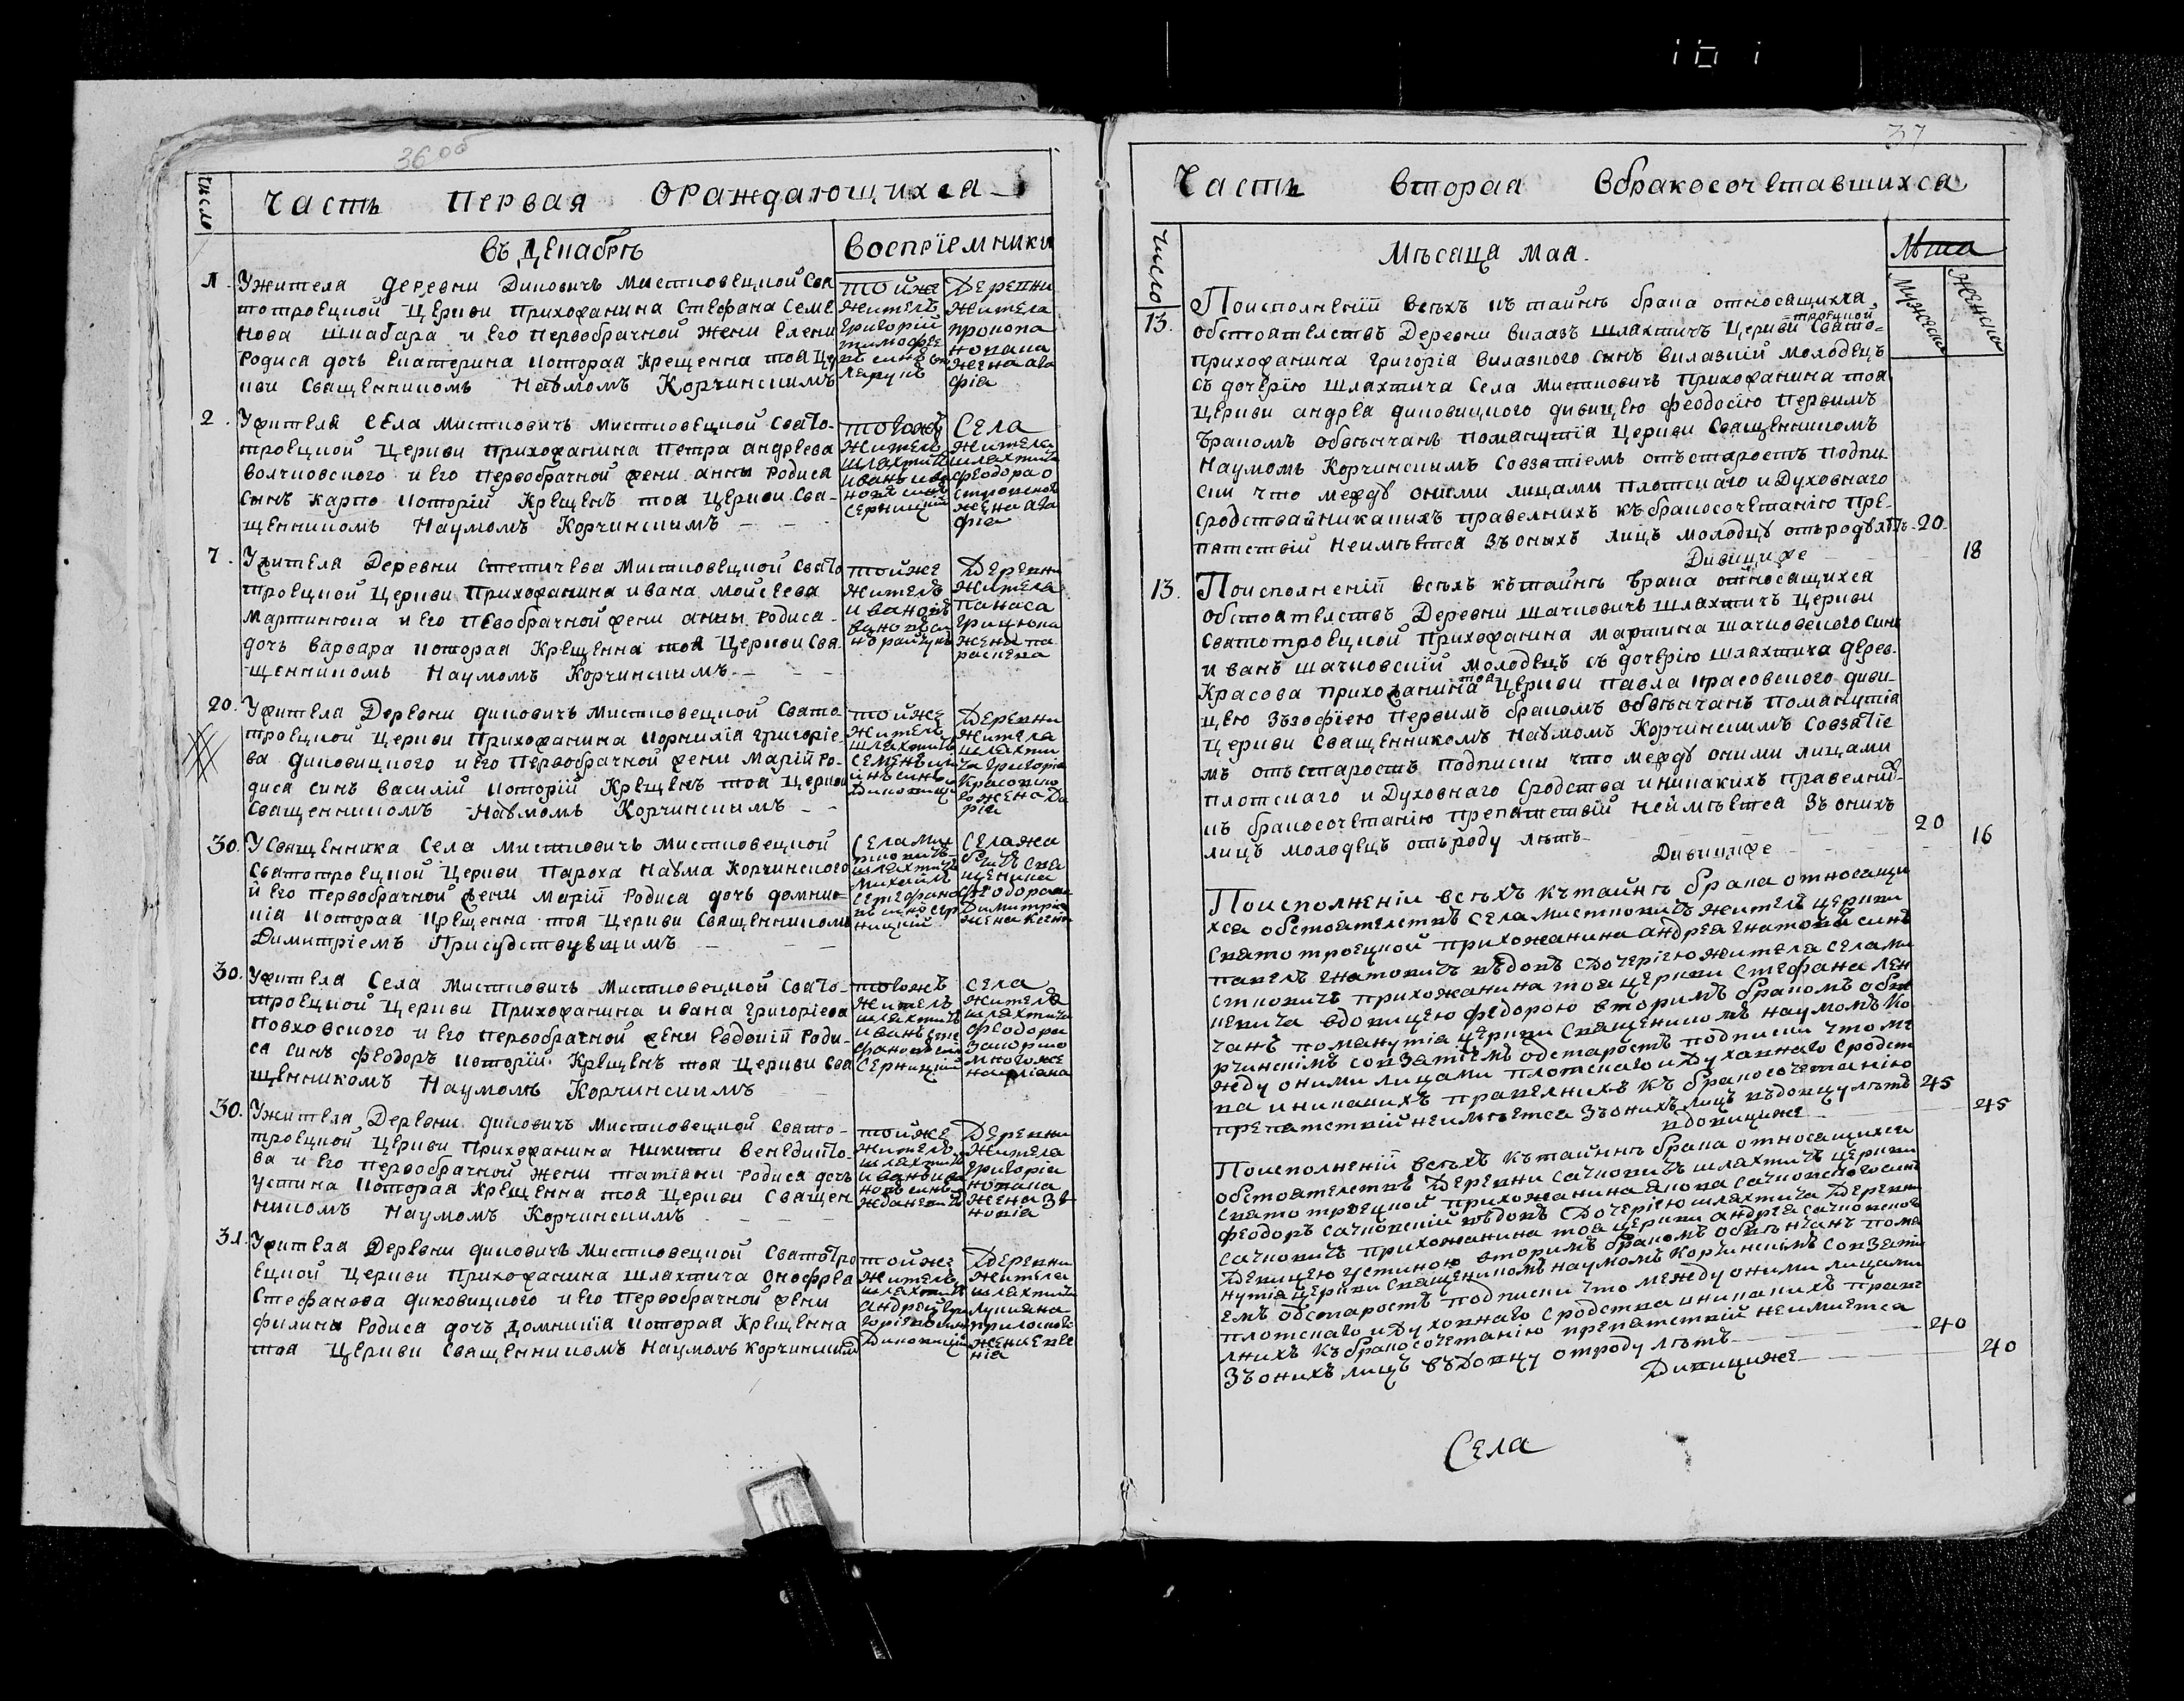 36 об
Число
Часть Первая Ораждающихса
въ Декабрѣ
Воспрїемники
1. Ужителя деревни Диковичъ Мистковецкой Сва
тотроецкой Церкви Прихожанина Стефана Семе
нова Шкабара и его первобрачной жени Елени
родиса дочь Екатерина которая крещенна тоя Це
ркви Священникомъ Наумомъ Корчинскимъ
тойже
житель
Григорій
Тимофее
въ синъ
Деревни
жителя
Прокопа
жена ага
фіа
2. Ужителя Села Мистковичъ Мистковецкой Свято-
троецкой Церкви Прихожанина Петра Андреева
Волчковского и его первобрачной жени Анны родиса
сынъ Карпо которій крещенъ тоя Церкви Свя-
щенникомъ Наумомъ Корчинскимъ
тогожъ
житель
шляхтичъ
Иванъ
новъ синъ
Серницкій
Села
жителя
шляхтича
Феодора О
жена ага
фіа
7. Ужителя Деревни Стетичева Мистковецкой Свято
троецкой Церкви Прихожанина Ивана Мойсеева
Мартинюка и его первобрачной жени Анны родиса
дочь Варвара которая крещенна тоя Церкви Свя-
щенникомъ Наумомъ Корчинскимъ
тойже
житель
Иванъ
Деревни
жителя
Панаса
Грицюка
жена па
раскева
20. Ужителя Деревни Диковичъ Мистковецкой Свято
троецкой Церкви Прихожанина Корнилія Григоріе-
ва Диковицкого и его первобрачной жени Марій ро-
диса синъ Василій которій крещенъ тоя Церкви
Священникомъ Наумомъ Корчинскимъ
тойже
житель
шляхтичъ
Семенъ
синъ
Диковицк
Деревни
жителя
шляхти
ча Григорія
Красовско
го жена Да
рія
30. У Священника Села Мистковичъ Мистковецкой
Святотроецкой Церкви Пароха Наума Корчинского
й его первобрачной жени Марій родиса дочь Домни-
кіа которая крещенна тоя Церкви Священникомъ
Димитріемъ Присудствувщимъ
Села Мис
тковичъ
шляхтичъ
Михаилъ
Стефано
въ синъ Сер
ницкій
Села Жа
бчичъ Свя
щеника
Феодорова
Димитрія
жена
30. Ужителя Села Мистковичъ Мистковецкой Свято-
троецкой Церкви Прихожанина Ивана Григоріева
Повховского и его первобрачной жени Евдокій роди-
са синъ Феодоръ которій крещенъ тоя Церкви Свя
щенникомъ Наумомъ Корчинскимъ
тогожъ
житель
шляхтичъ
Иванъ Сте
фановъ син
Серницкій
Села
жителя
шляхтича
Феодора
30. Ужителя Деревни Диковичъ Мистковецкой Свято-
троецкой Церкви Прихожанина Никити Венедикто-
ва и его первобрачной жени Татіани родиса дочь
Устина которая крещенна тоя Церкви Священ
никомъ Наумомъ Корчинскимъ
тойже
житель
шляхтичъ
Иванъ Ива
новъ синъ
Жданевич
Деревни
жителя
Григорія
Новака
жена Зе
новіа
31. Ужителя Деревни Диковичъ Мистковецкой Святотро
ецкой Церкви Прихожанина шляхтича Онофрея
Стефанова Диковицкого и его первобрачной жени
Филини родиса дочъ Домникіа которая крещенна
тоя Церкви Священникомъ Наумомъ Корчинским
тойже
житель
шляхтичъ
Андрей Гри
горіевъ син
Диковицкій
Деревни
жителя
шляхтича
Лукияна
жена Евге
ніа
37
Часть вторая Вбракосочетавшихся
Число
Мѣсаца Маа.
Лѣта
мужеска
женска
13. Поисполненій всѣхъ къ тайнѣ брака относащихса
обстоятелствъ Деревни Вилазъ шляхтичъ Церкви Свято=
=троецкой
Прихожанина Григоріа Вилазкого синъ Вилазкій молодецъ
съ дочерію шляхтича Села Мистковичъ Прихожанина тоя
Церкви Андрея Диковицкого дивицею Феодосію первимъ
бракомъ обвѣнчанъ поманутіа Церкви Священникомъ
Наумомъ Корчинскимъ совзатіемъ отъ старостъ подпи
ски что между оними лицами плотскаго и Духовнаго
сродства иникакихъ правелнихъ къ бракосочетанію пре-
патствій неимѣетса зъоныхъ лицъ молодцу отъроду лѣтъ 20
Дивицѣже 18
13. Поисполненій всѣхъ къ тайнѣ брака относащихся
обстоятелствъ Деревни Шачковичъ шляхтичъ Церкви
Святотроецкой Прихожанина Мартина Шачковского синъ
Иванъ Шачковскій молодецъ съ дочерію шляхтича дерев-
Красова Прихожанина тоя Церкви Павла Красовского диви-
цею Зъзофіею первимъ бракомъ обвѣнчанъ поманутіа
Церкви Священникомъ Наумомъ Корчинскимъ совзатіе
мъ отъстаростъ подписки что между оними лицами
плотскаго и Духовнаго сродства иникакихъ правелнихъ
къ бракосочетанію препатствій неймѣетса зъонихъ
лицъ молодецъ отъроду лѣтъ 20
Дивицѣже 16
Поисполненіи всѣхъ къ тайнѣ брака относащи
хса обстоятелствъ села Мистковичъ жителъ церкви
Святотроецкой прихожанина Андрея Гнатова синъ
Павелъ Гнатовичъ вѣдовъ съ дочеріею жителя села Ми
стковичъ прихожанина тоя церкви Стефана Лен
кевича вдовицею Федорою вторимъ бракомъ обвѣ
чанъ поманутіа церкви Священикомъ Наумомъ Ко
рчинскімъ совзатіемъ одстаростъ подписки что ме
жду оними лицами плотскаго и Духавнаго сродст
ва иникакихъ правелнихъ къ бракосочетанію
препатствій неимѣетса зъонихъ лицъ вѣдовцу лѣтъ 45
вдовицѣже 45
Поисполненій всѣхъ къ тайнѣ брака относащихса
обстоятелствъ Деревни Сачковичъ шляхтичъ церкви
Святотроецкой прихожанина Якова Сачковского синъ
Феодоръ Сачковскій вѣдовъ съ дочерію шляхтича Деревни
Сачковичъ прихожанина тоя церкви Андрея Сачковского
девицею Устиною вторимъ бракомъ обвѣнчанъ пома
нутіа церкви Священикомъ Наумомъ Корчинскімъ совзаті
емъ одстаростъ подписки что между оними лицами
плотскаго и Духовнаго сродства иникакихъ праве
лнихъ къ бракосочетанію препатствій неимиетса
Зъонихъ лицъ въдовцу отроду лѣтъ 40
Дивицѣже 40
Села